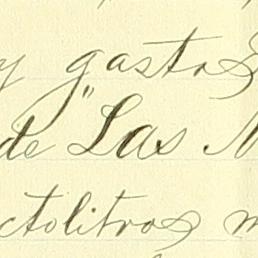 y gastos
de "Las M
ctolitros m